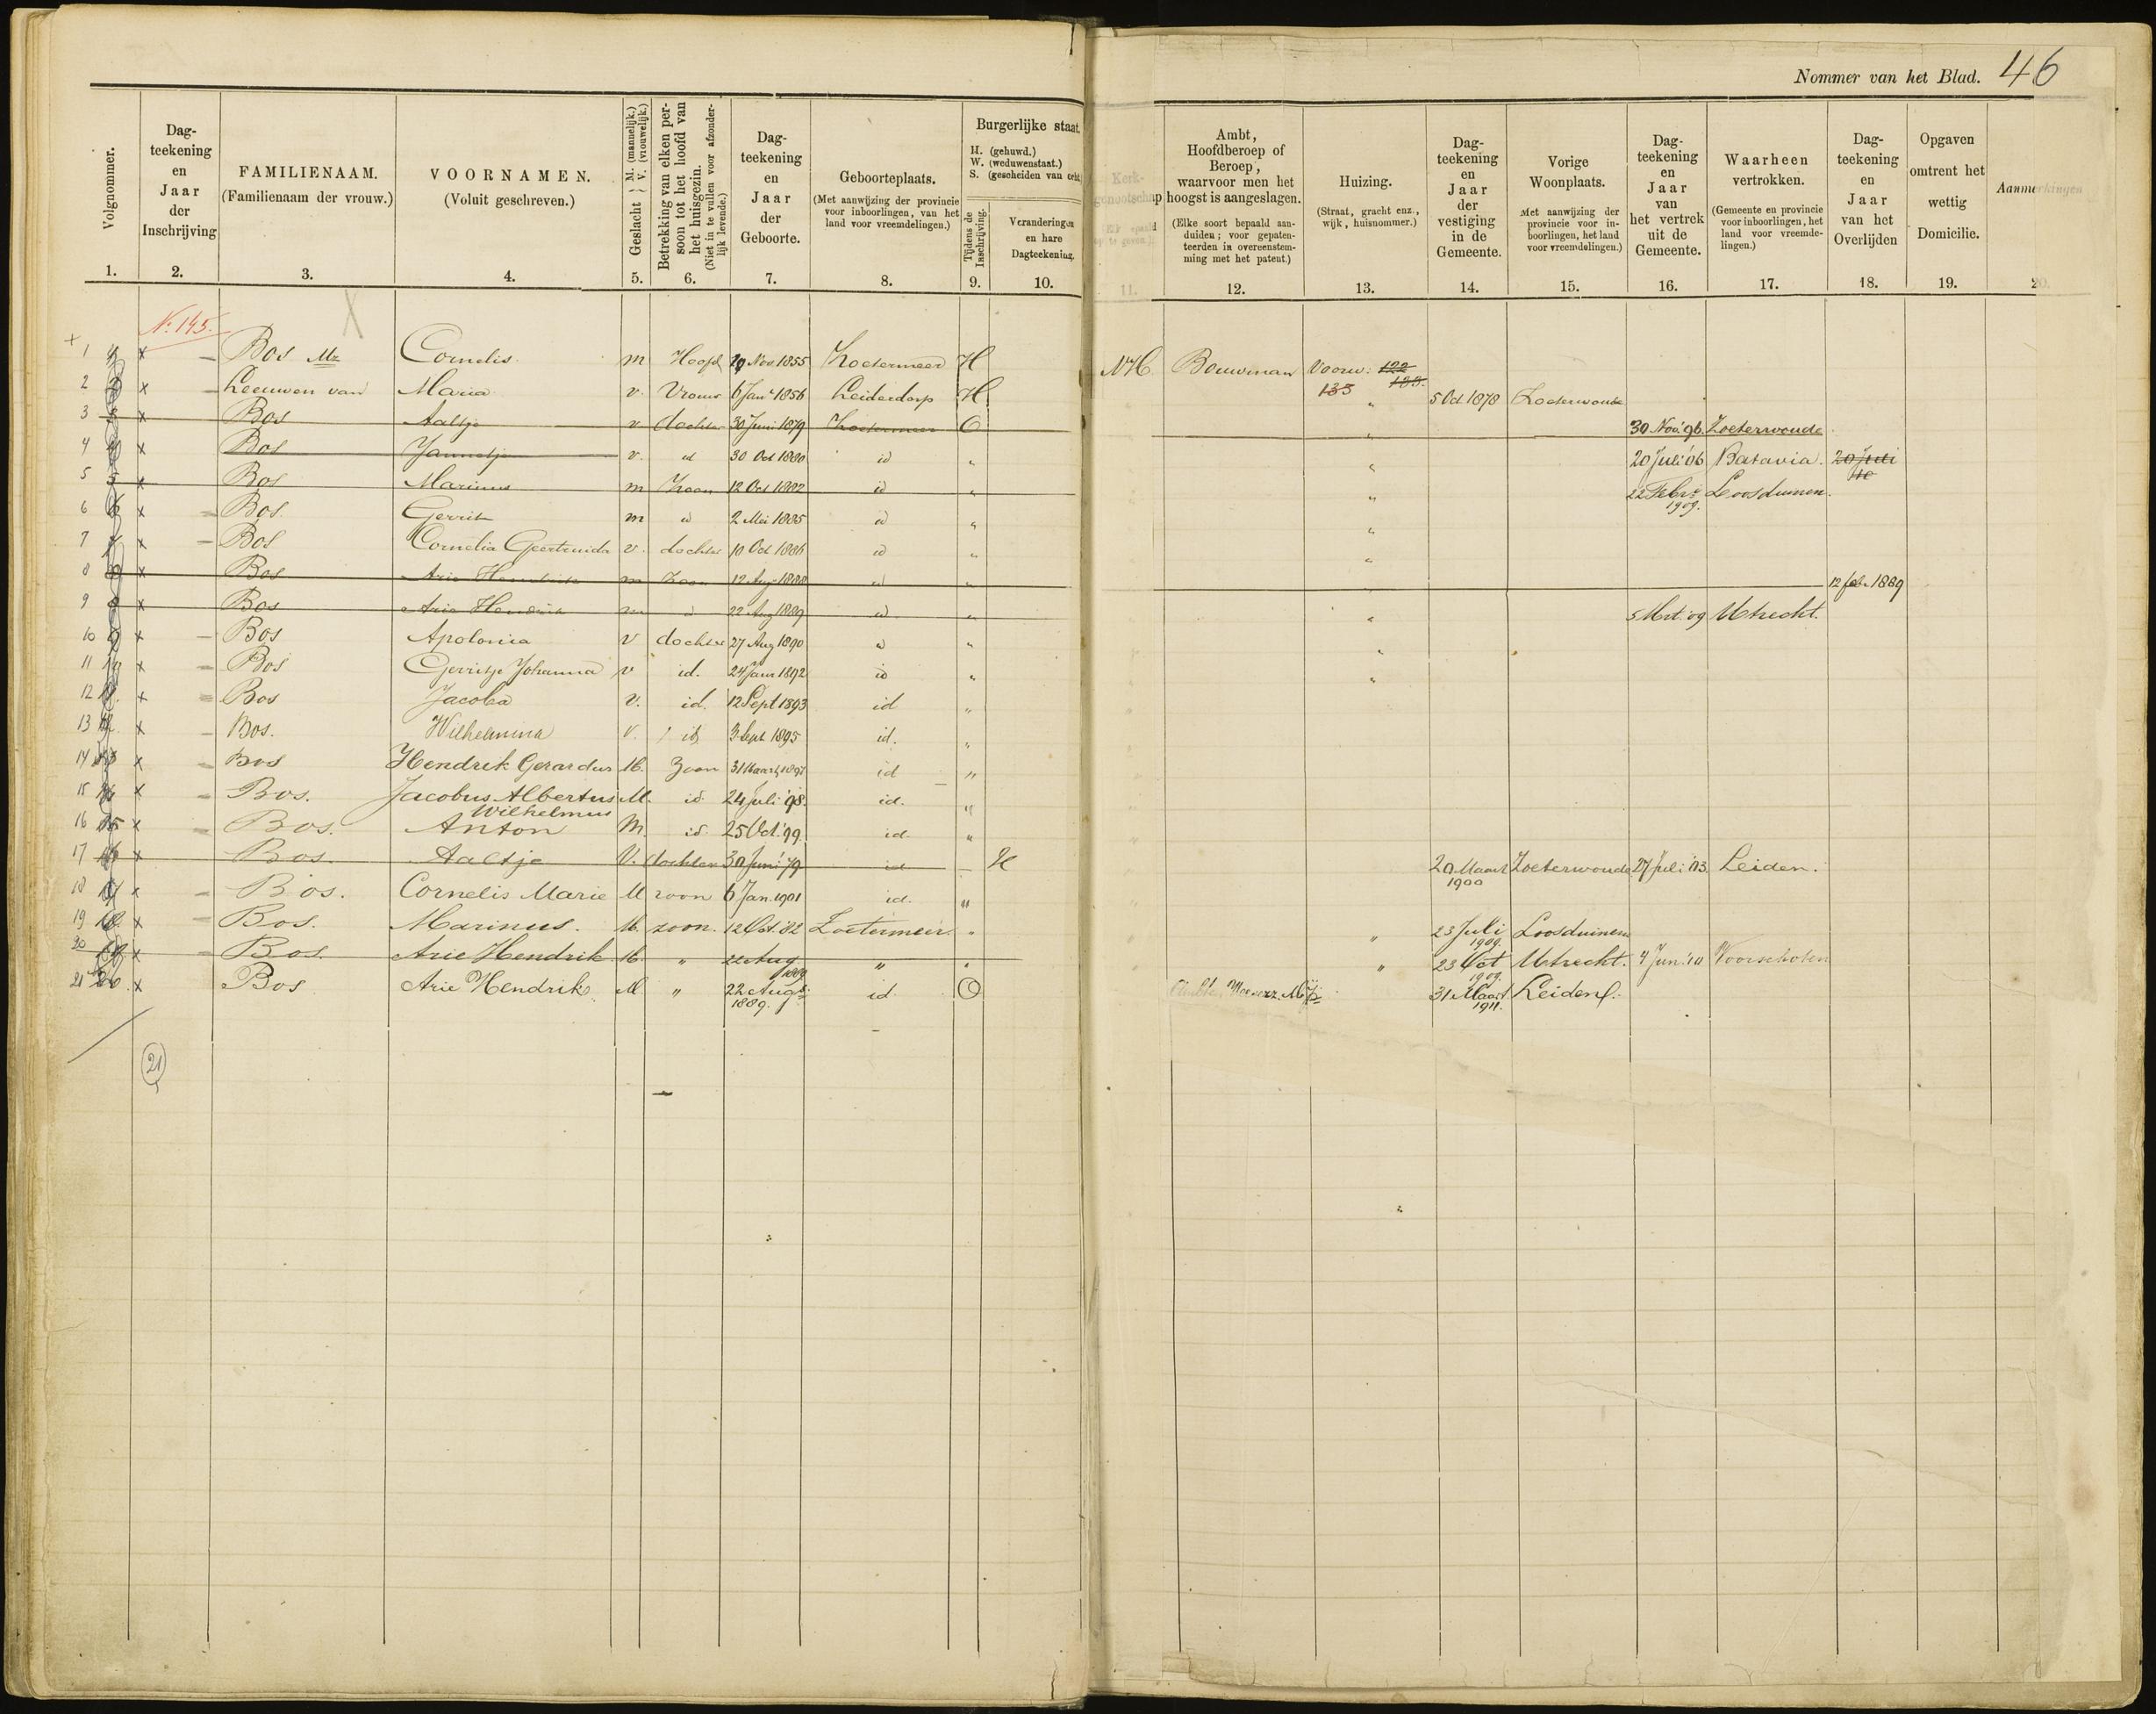 Nommer van het Blad. 46
Volgnommer. 1.
Dag-teekening en Jaar der Inschrijving 2.
FAMILIENAAM. (Familienaam der vrouw.) 3.
VOORNAMEN. (Voluit geschreven.) 4.
Geslacht } M. (mannelijk.) V. (vrouwelijk.) 5.
Betrekking van elken persoon tot het hoofd van het huisgezin. (Niet in te vullen voor afzonderlijk levende.) 6.
Dag-teekening en Jaar der Geboorte. 7.
Geboorteplaats. (Met aanwijzing der provincie voor inboorlingen, van het land voor vreemdelingen.) 8.
Burgerlijke staat.
H. (gehuwd.)
W. (weduwenstaat.)
S. (gescheiden van echt)
Tijdens de Inschrijving. 9.
Veranderingen en hare Dagteekening. 10.
Kerk-genootschap 11.
Ambt, Hoofdberoep of Beroep, waarvoor men het hoogst is aangeslagen. (Elke soort bepaald aanduiden; voor gepatenteerden in overeenstemming met het patent.) 12.
Huizing. (Straat, gracht enz., wijk, huisnommer.) 13.
Dag-teekening en Jaar der vestiging in de Gemeente. 14.
Vorige Woonplaats. Met aanwijzing der provincie voor inboorlingen, het land voor vreemdelingen.) 15.
Dag-teekening en Jaar van het vertrek uit de Gemeente. 16.
Waarheen vertrokken. (Gemeente en provincie voor inboorlingen, het land voor vreemdelingen.) 17.
Dag-teekening en Jaar van het Overlijden 18.
Opgaven omtrent het wettig Domicilie. 19.
Aanmerkingen 20.
No. 145.
1 x Bos Mz Cornelis m Hoofd 19 Nov 1855 Zoetermeer H NH Bouwman Voorw: 122 133. 135
2 x Leeuwen van Maria v. Vrouw 6 Jan 1856 Leiderdorp H " 5 Oct 1878 Zoeterwoude
3 x Bos Aaltje v dochter 30 Juni 1879 Zoetermeer O " 30 Nov. '96. Zoeterwoude
4 x Bos Jannetje v. id 30 Oct 1880 id " " 20 Juli '06 Batavia. 20 Juli
5 x Bos Marinus m Zoon 12 Oct 1882 id " " 22 Febr. 1909. Loosduinen.
6 x Bos Gerrit m id 2 Mei 1885 id " "
7 x Bos Cornelia Geertruida v. dochter 10 Oct 1886 id " "
8 x Bos Arie Hendrik m Zoon 12 Aug 1888 id " 12 febr 1889
9 x Bos Arie Hendrik m id 22 Aug 1889 id " " 5 Mrt. '09 Utrecht.
10 x Bos Apolonia v dochter 27 Aug 1890 id " "
11 x Bos Gerritje Johanna v id. 24 Janr 1892 id " "
12 x Bos Jacoba v. id. 12 Sept 1893 id "
13 x Bos. Wilhelmina v. id 3 Sept 1895 id. "
14 x Bos Hendrik Gerardus M. Zoon 31 Maart 1897 id "
15 x Bos. Jacobus Albertus Wilhelmus M. id. 24 Juli '98. id. "
16 x Bos. Anton M. id. 25 Oct. '99. id. "
17 x Bos. Aaltje V. dochter 30 Juni '79 id H 20 Maart 1900 Zoeterwoude 27 Juli '03 Leiden.
18 x Bos. Cornelis Marie M zoon 6 Jan. 1901 id. "
19 x Bos. Marinus. M. zoon. 12 Oct. '82 Zoetermeer. " " 23 Juli 1909. Loosduinen
20 x Bos. Arie Hendrik M. " 22 Aug 1889 " " " 23 Oct 1909. Utrecht. 4 Jun. '10 Voorschoten
21 x Bos Arie Hendrik M " 22 Aug: 1889. id O 31 Maart 1911. Leiden
21